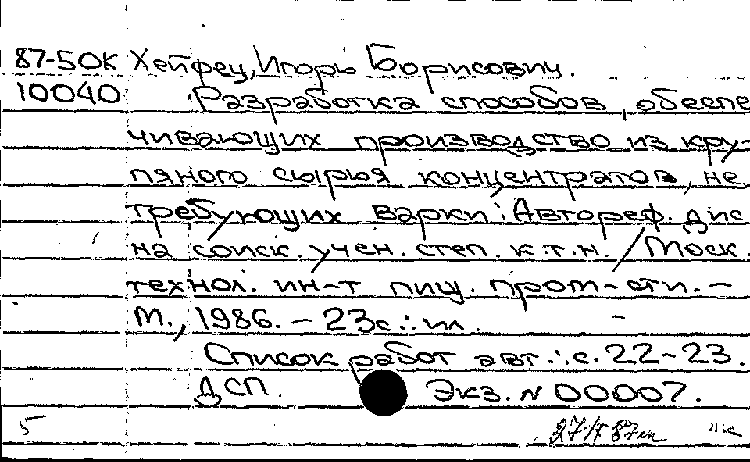 87-50К Хейфец, Игорь Борисович.
10040 Разработка способов, обеспе
чивающих производство из кру-
пяного сырья концентратов, не
требующих варки: Автореф. дис
на соиск. учен. степ. к.т.н. / Моск.
технол. ин-т пищ. пром-сти. –
М., 1986. – 23с.: ил.
Список работ авт.: с. 22-23.
ДСП. Экз. N 00007.
5